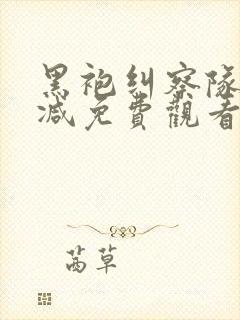 黑袍纠察隊
减免費觀看
茜草